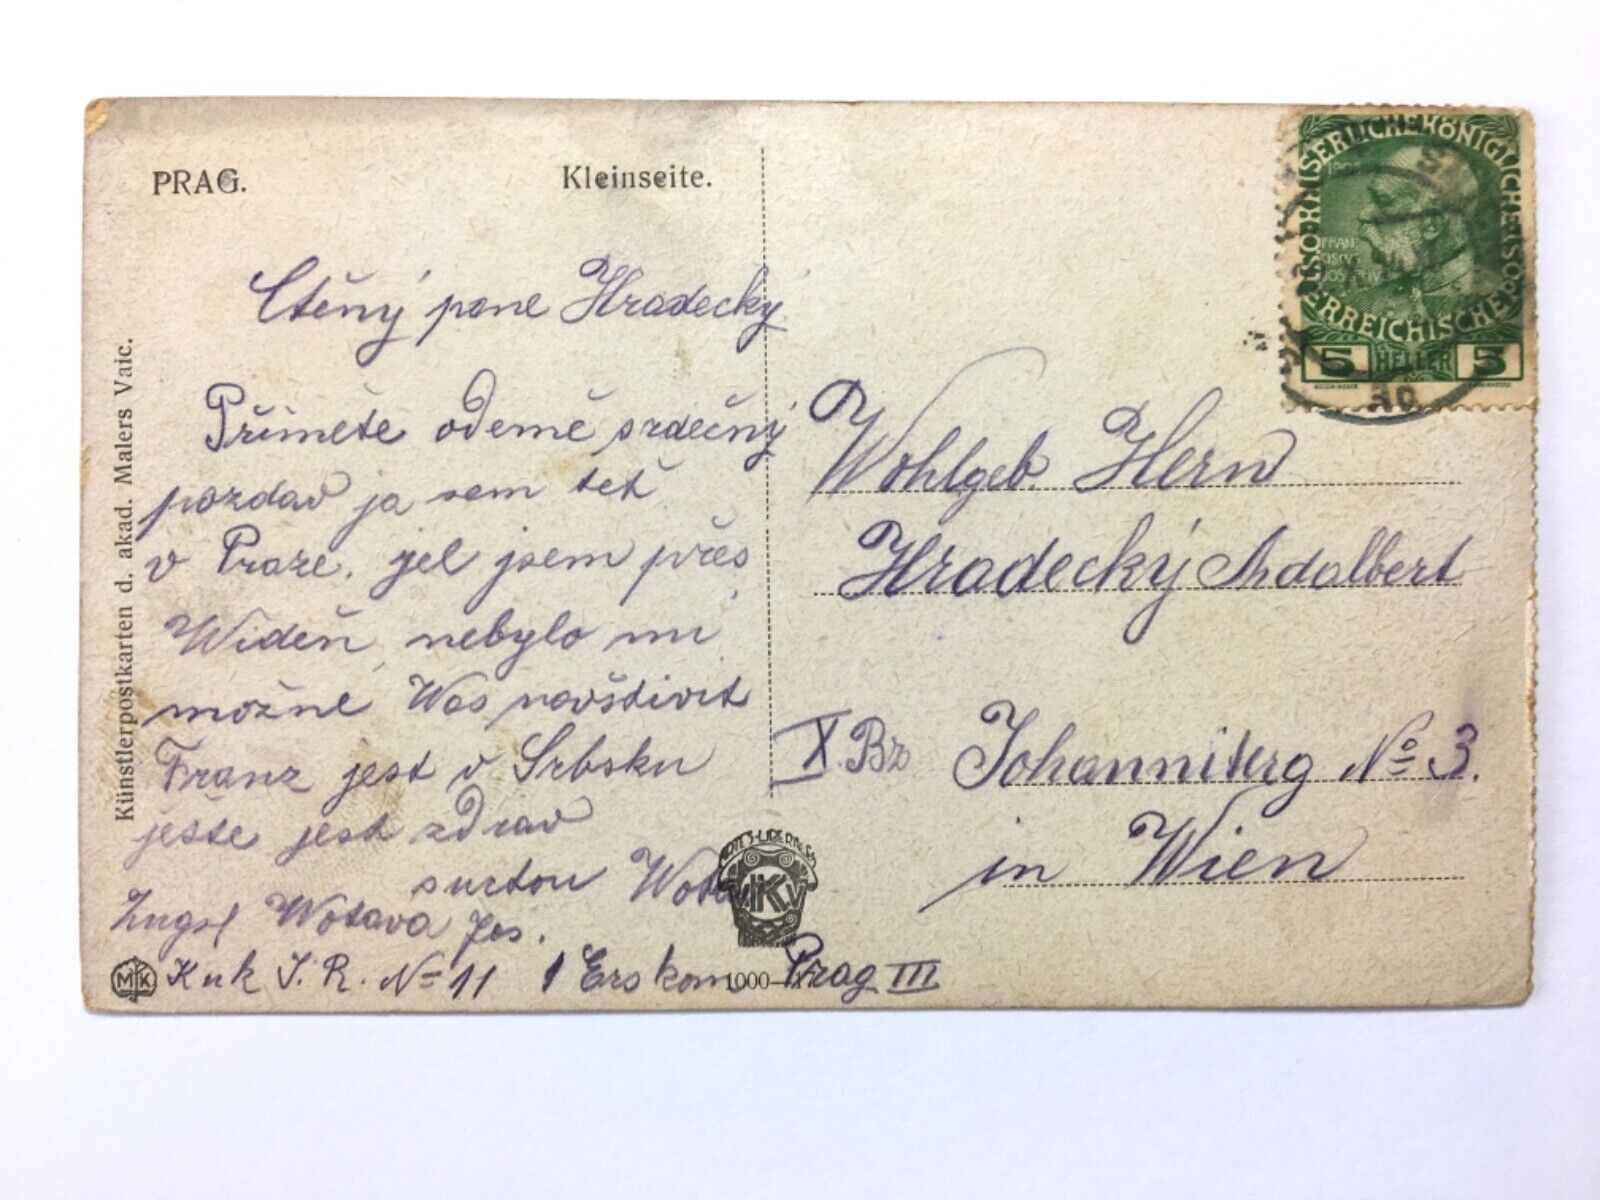 PRAG. Kleinseite.
Künstlerpostkarten d. akad. Malers Vaic.
Ctěný pane Hradecký
Přiměte odemě srdečný
pozdav ja sem teť
v Praze. jel jsem přes
Wideň, nebylo mi
možne Was navštivit
Franz jest v Srbsku
ješte jest zdrav
Wota
Zugsf Wotava Jos.
KuK I. R. No 11 1 Ers kom Prag III
1000
MK
VKKV
KAISERLICHE KÖNIGLICHE
ÖSTERREICHISCHE POST
FRAN
CISCVS
IOSEPHVS I
5 HELLER 5
Wohlgeb. Herrn
Hradecký Adalbert
X. Bz Johanniterg No 3.
in Wien